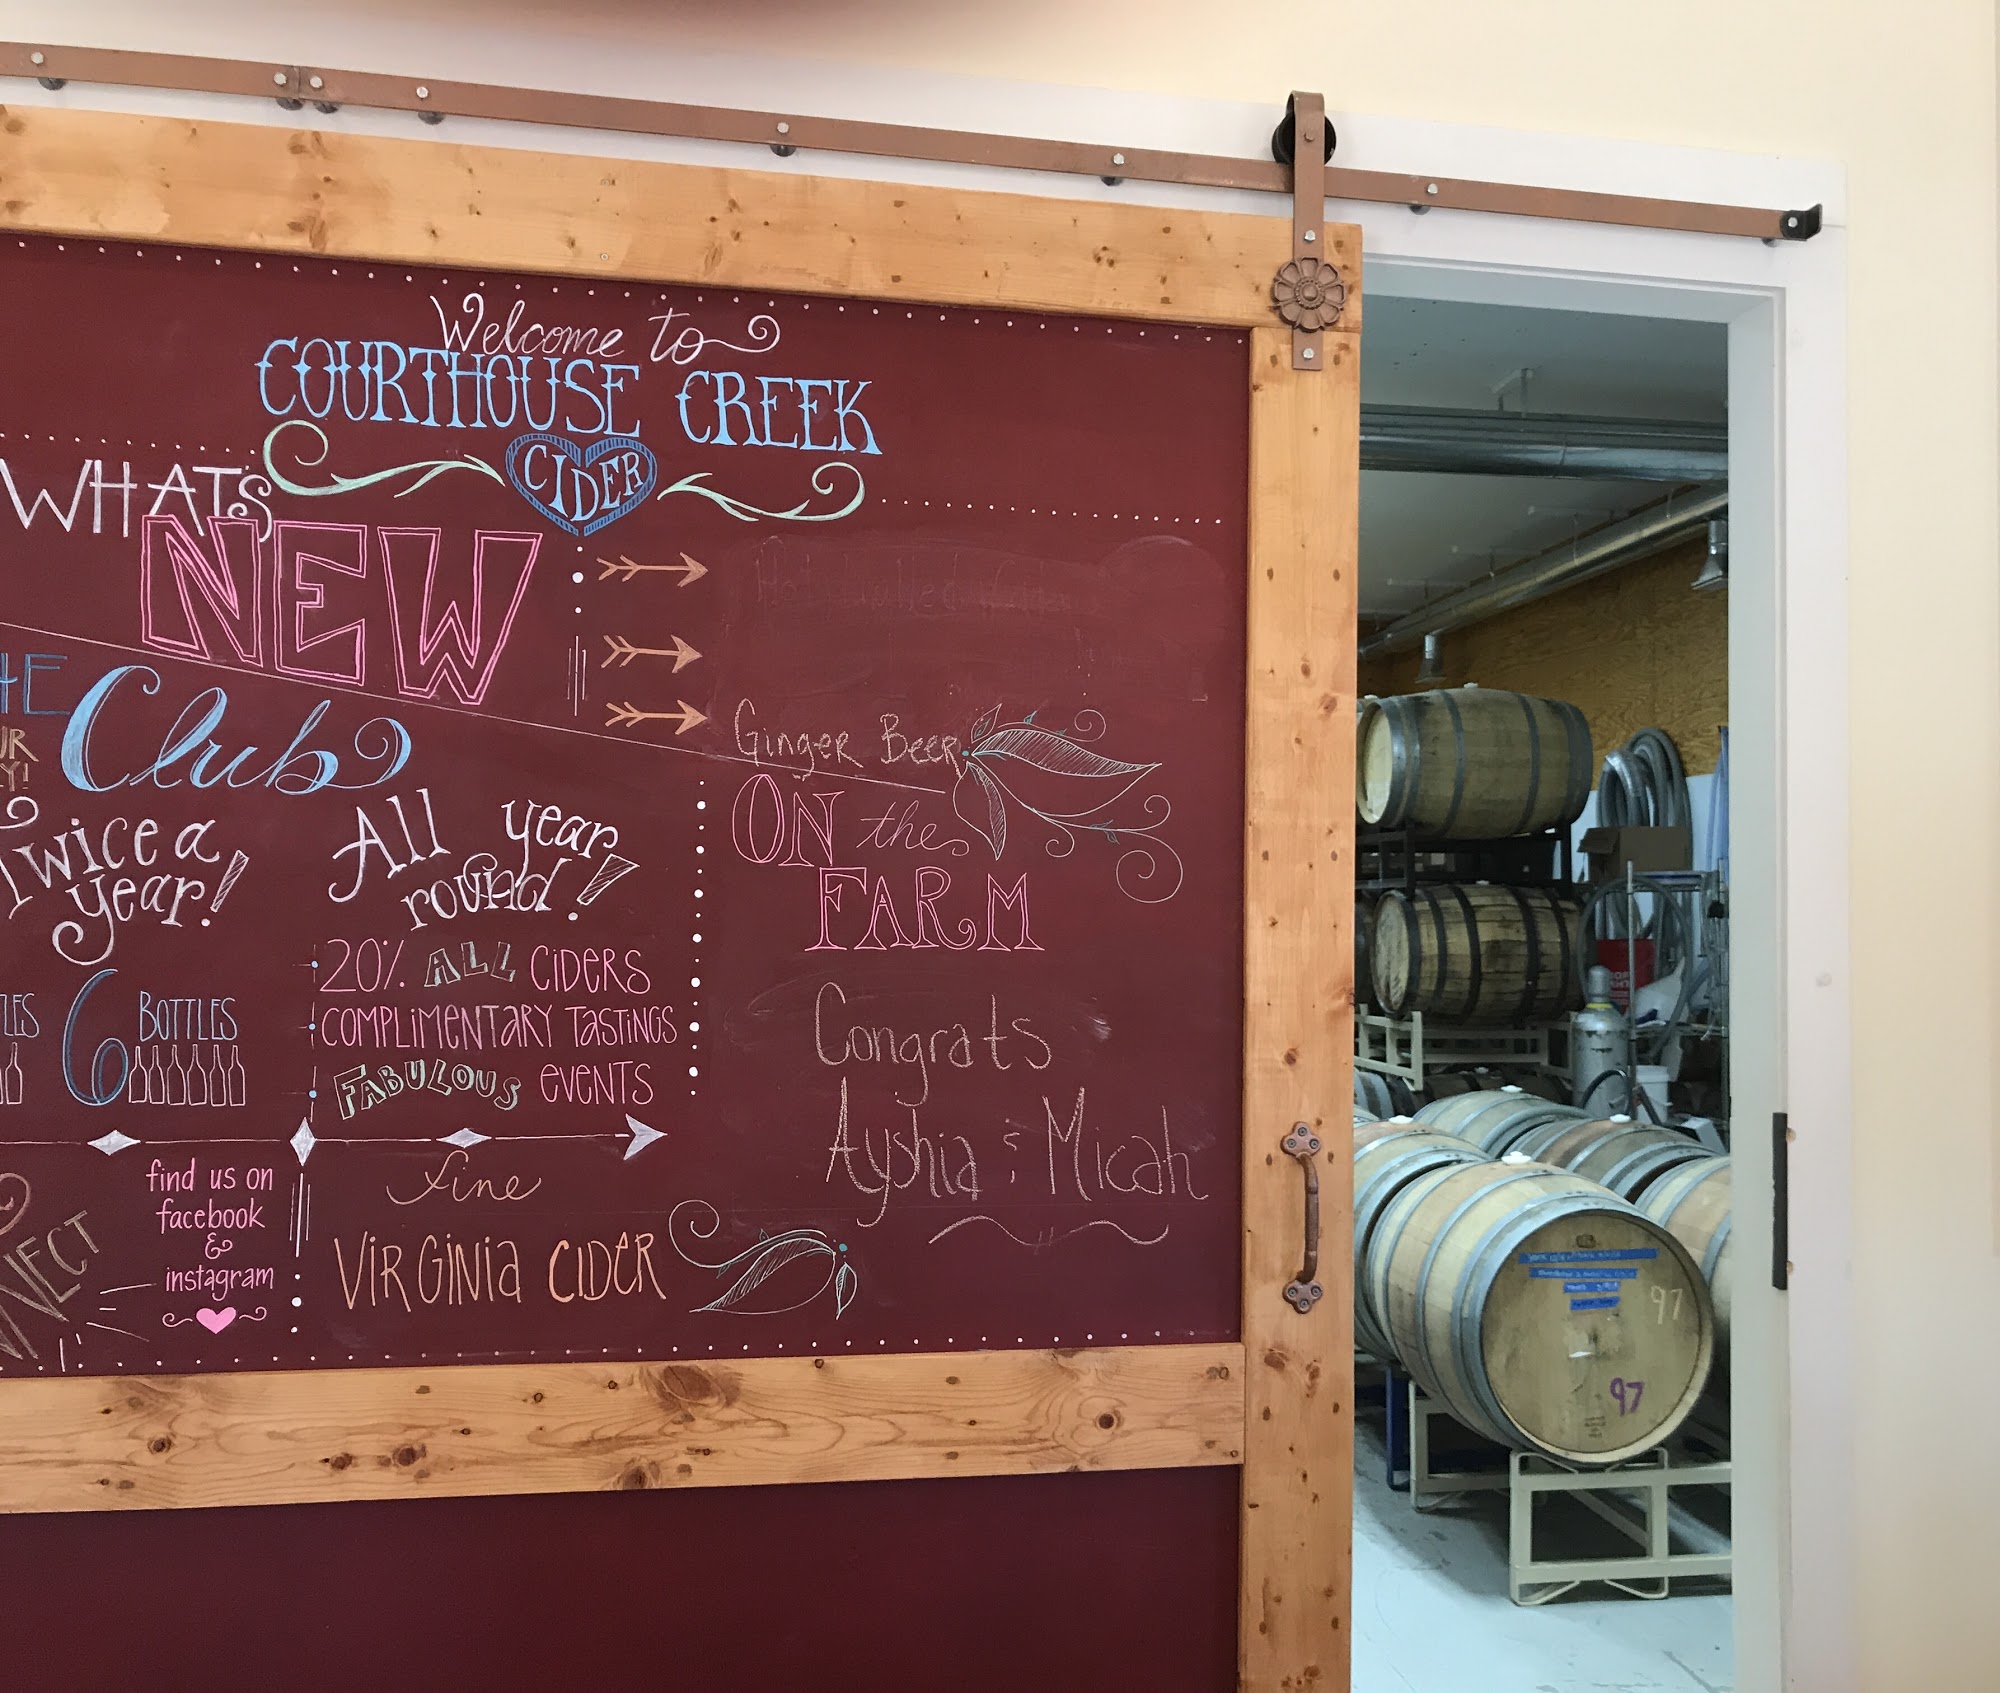 Welcome to
COURTHOUSE CREEK
CIDER
WHATS
NEW
Ginger Beer
Club
Twice a
year!
6 BOTTLES
All year
round!
20% ALL CIDERS
COMPLIMENTARY TASTINGS
FABULOUS EVENTS
ON the
FARM
Congrats
Ayshia & Micah
find us on
facebook
&
instagram
fine
VIRGINIA CIDER
97
97